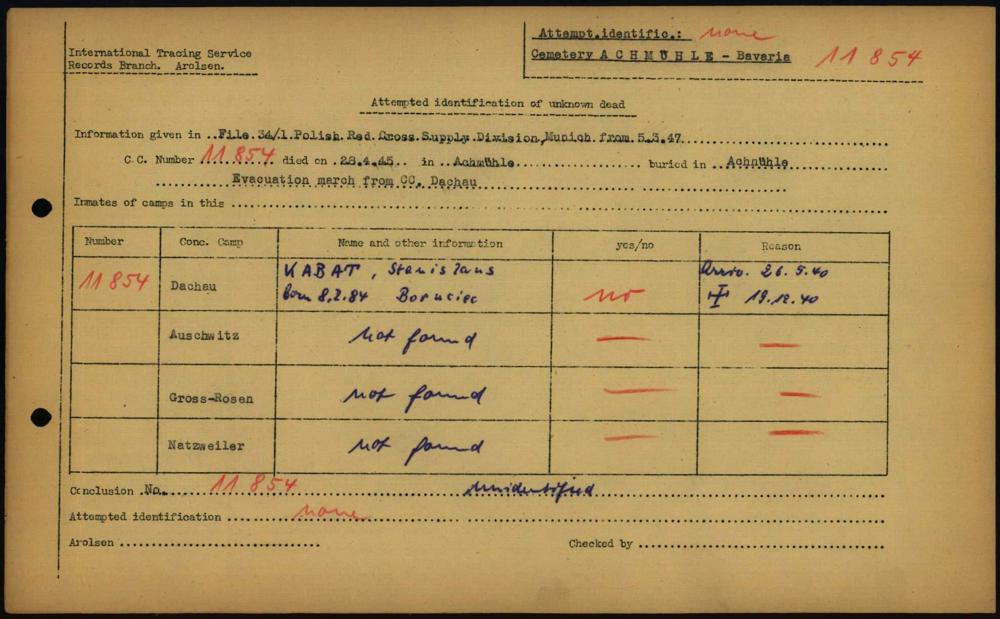 International Tracing Service
Records Branch. Arolsen.
Attempt.identific.: none
Cemetery A C H M Ü H L E - Bavaria 11 854
Attempted identification of unknown dead
Information given in ..File 34/1 Polish Red Cross Supply Division, Munich from 5.3.47
C.C. Number 11 854 died on .28.4.45.. in ..Achmühle.......... buried in ..Achmühle
Evacuation march from CC. Dachau
Inmates of camps in this
Number Conc. Camp Name and other information yes/no Reason
11 854 Dachau KABAT, Stanislaus no Arriv. 26.5.40
born 8.2.84 Boruciec 19.12.40
Auschwitz not found —
Gross-Rosen not found —
Natzweiler not found —
Conclusion No. 11 854 unidentified
Attempted identification none
Arolsen Checked by